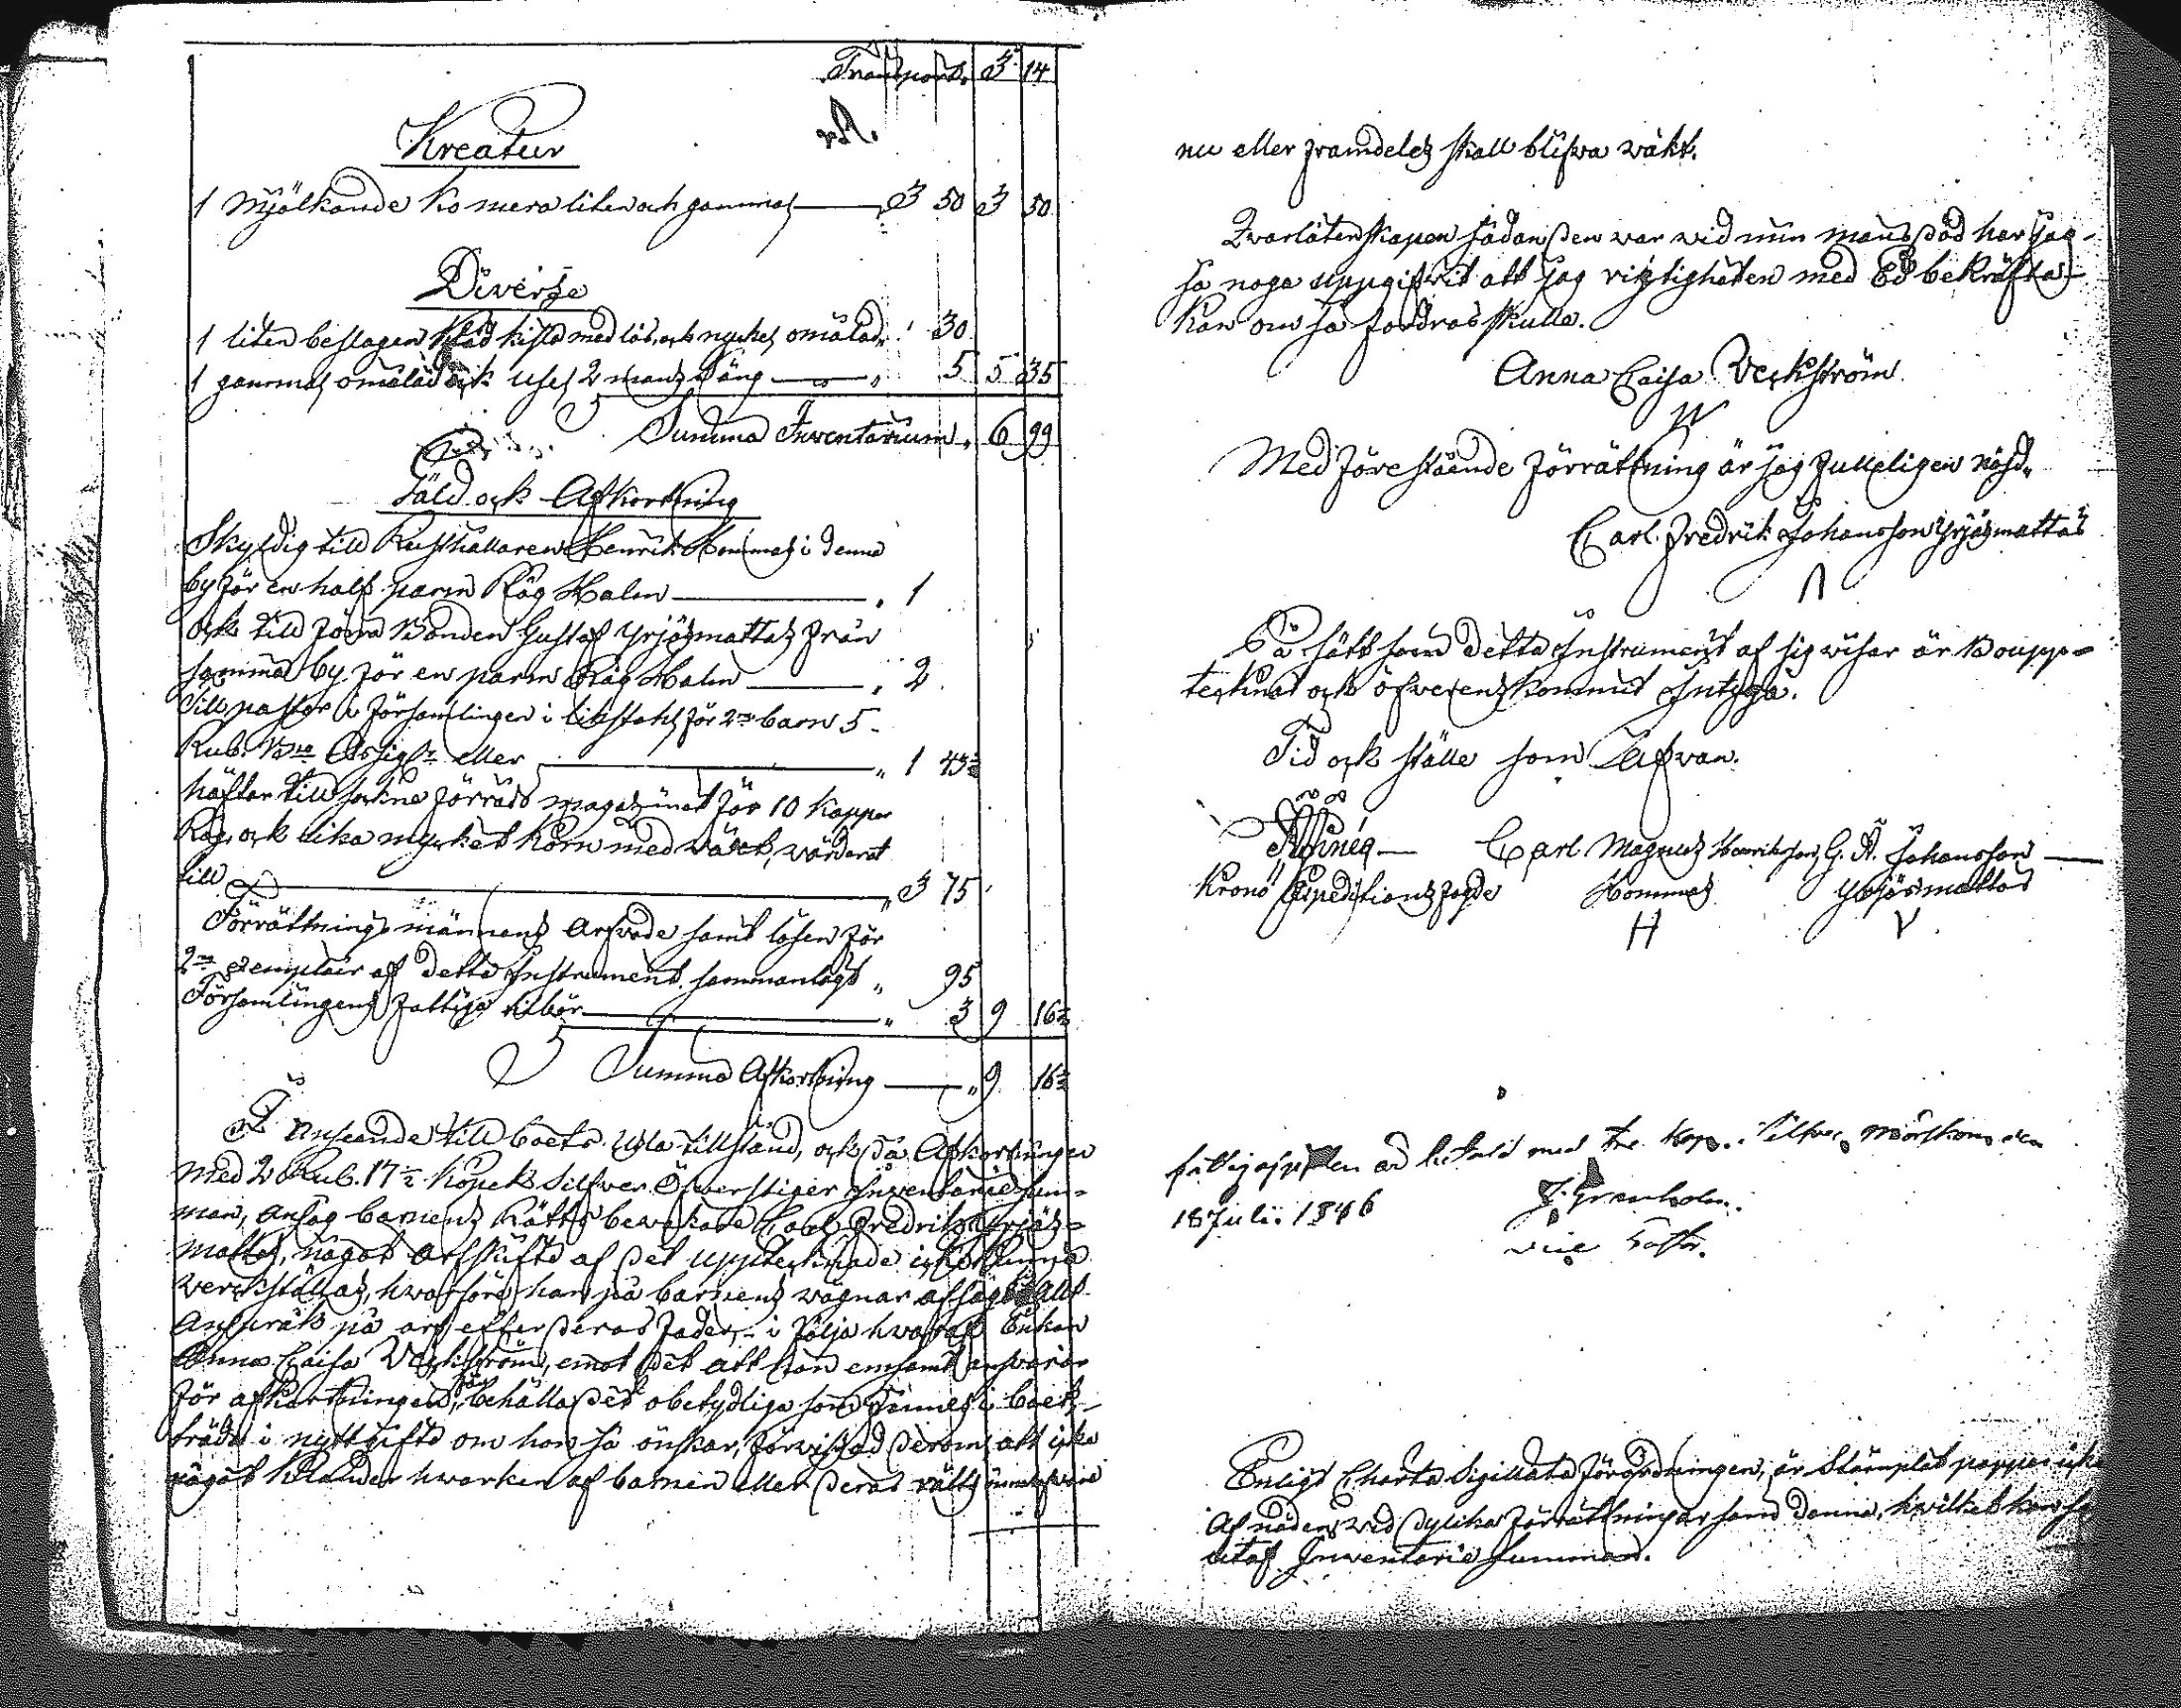 Transport. 3 14
Kreatur
1 Mjölkande Ko mera liten och gammal 3 50 3 50
Diverse
1 liten beslagen Kläd kista med lås och nyckel omålad 30
1 gammal omålad ock usel 2 mans Säng 5 5 35
Summa Inventarium 6 99
Gäld ock Afkortning
Skyldig till Rusthållaren Henrik Hommas i denna
by för en half parm Råg Halm 1
ock till förra Bonden Gustaf Yrjösmattas från
samma by för en parm Råg Halm 2
Till pastor i församlingen i likstohl för 2ne barn 5
Rub. B:co Assig:r eller 1 43
häftar till sockne förråds magazinet för 10 Kappar
Råg, ock lika mycket Korn med växt, värderat
till 3 75
Förrättnings männens arfvode samt lösen för
2ne exemplair af detta Instrument sammanlagt 95
Församlingens fattiga tilkör 3 9 16½
Summa Afkortning 9 16½
I anseende till boets usla tillstånd, ock då Afkortningen
med 2 Rub. 17½ Kopek Silfver Öfverstiger Inventarie sum-
man, ansåg barnens Rätts bevakare Carl Fredrik Yrjös-
mattas, något arfskifte af det uppteknade icke kunna
verkställas, hvarföre han på barnens vägnar afsagt allt
Anspråk på arf efter deras fader, i följd hvaraf Enkan
Anna Caisa Veckström, emot det att hon ensamt ansvarar
för afkortningen, får behålla det obetydliga som finnes i boet,
träda i nytt gifte om hon så önskar, förvissad derom att icke
något Klander hvarken af barnen eller deras rätts innehafvare
nu eller framdeles skall blifva väkt.
Qvarlåtenskapen sådan den var vid min mans död har jag
så noga uppgifvit att jag riktigheten med Ed bekräfta
Kan om så fordras skulle.
Anna Caisa Veckström
Med förestående förrättning är jag fulleligen nöjd,
Carl Fredrik Johansson Yrjösmattas
På sätt som detta Instrument af sig visar är Boupp-
teknat ock öfverenskommit Intyga.
Tid ock ställe som Ofvan.
Carl Magnus Henriksson, G. A. Johansson
Krono Expeditions fogde Hommas Yrjösmattas
H V
fattigprocenten är betald med tre Kop. Silfver, Mörskom den
18 Juli 1846 J. Granholm.
vice Pastor.
Enligt Charta Sigillata förordningen, är Stämplat papper icke
Af nöden vid dylika förrättningar som denna, hvilket kan ses
utaf Inventarie Summan.